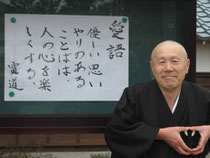 愛語
優しい思い
やりのある
ことばは
人の心を楽
しくする。
霊道